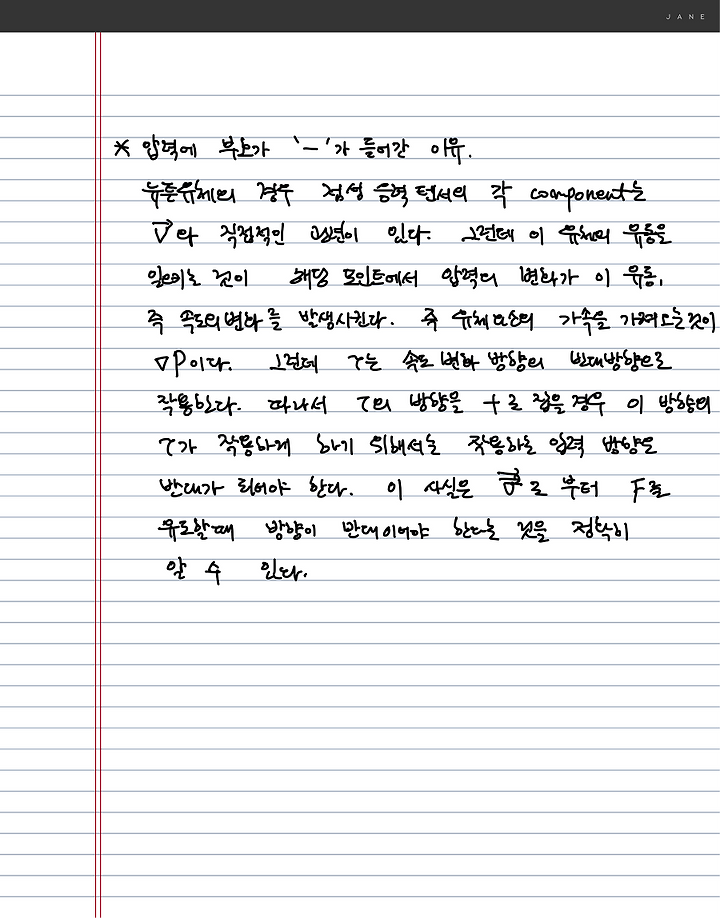 JANE
* 압력에 부호가 '-'가 들어간 이유.
뉴톤유체의 경우 점성 응력 텐서의 각 component는
V⃗와 직접적인 관련이 있다. 그런데 이 유체의 유동을
일으키는 것이 해당 포인트에서 압력의 변화가 이 유동,
즉 속도의 변화를 발생시킨다. 즉 유체요소의 가속을 가져오는것이
∇P이다. 그런데 τ는 속도 변화 방향의 반대방향으로
작용한다. 따라서 τ의 방향을 +로 잡을 경우 이 방향의
τ가 작용하게 하기 위해서는 작용하는 압력 방향도
반대가 되어야 한다. 이 사실은 로 부터 F를
유도할때 방향이 반대이어야 한다는 것을 정확히
알 수 있다.